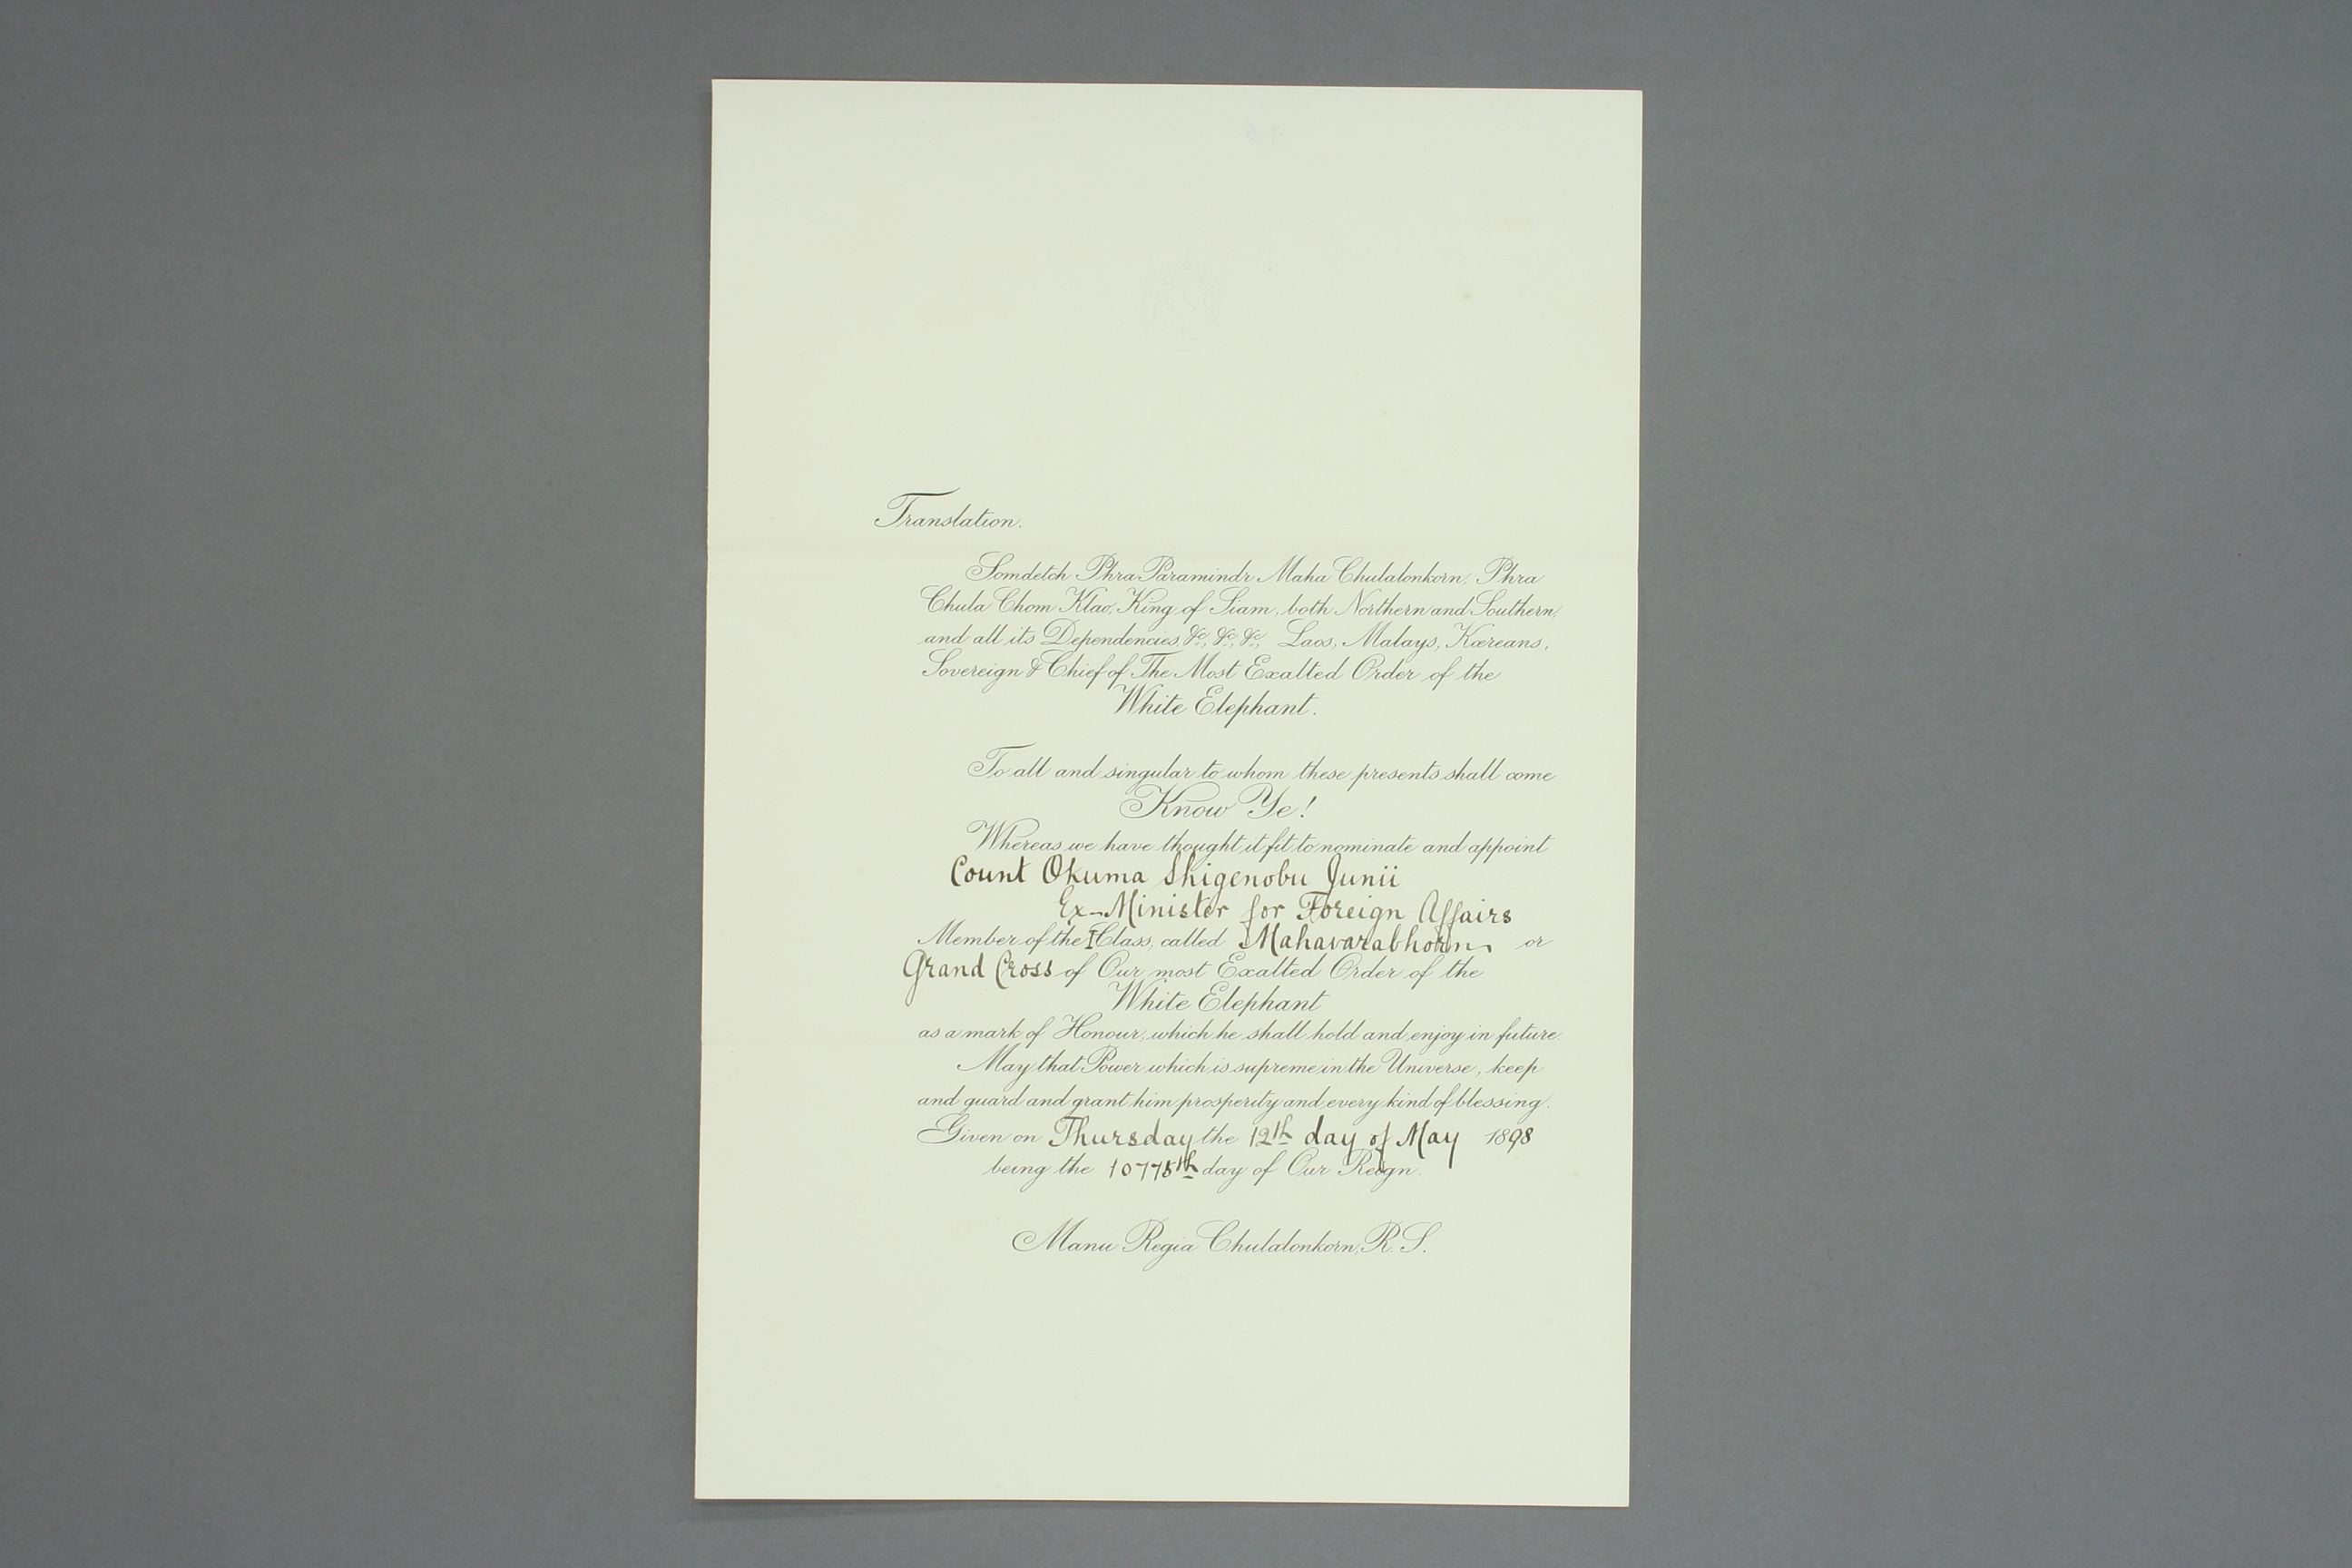 Translation.
Somdetch Phra Paramindr Maha Chulalonkorn, Phra
Chula Chom Klao, King of Siam, both Northern and Southern,
and all its Dependencies, &c., &c., &c., Laos, Malays, Kæreans,
Sovereign & Chief of The Most Exalted Order of the
White Elephant.
To all and singular to whom these presents shall come
Know Ye!
Whereas we have thought it fit to nominate and appoint
Count Okuma Shigenobu Junii
Ex-Minister for Foreign Affairs
Member of the I Class, called Mahavarabhorn or
Grand Cross of Our most Exalted Order of the
White Elephant
as a mark of Honour, which he shall hold and enjoy in future.
May that Power which is supreme in the Universe, keep
and guard and grant him prosperity and every kind of blessing.
Given on Thursday the 12th day of May 1898
being the 10775th day of Our Reign.
Manu Regia Chulalonkorn, R. S.